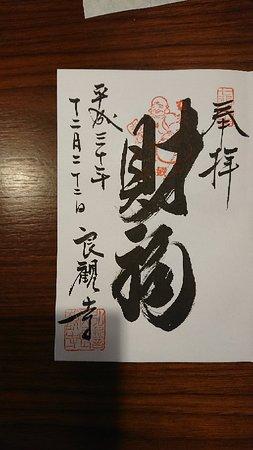 奉拝
財福
平成三十年
十二月二十二日
良観寺